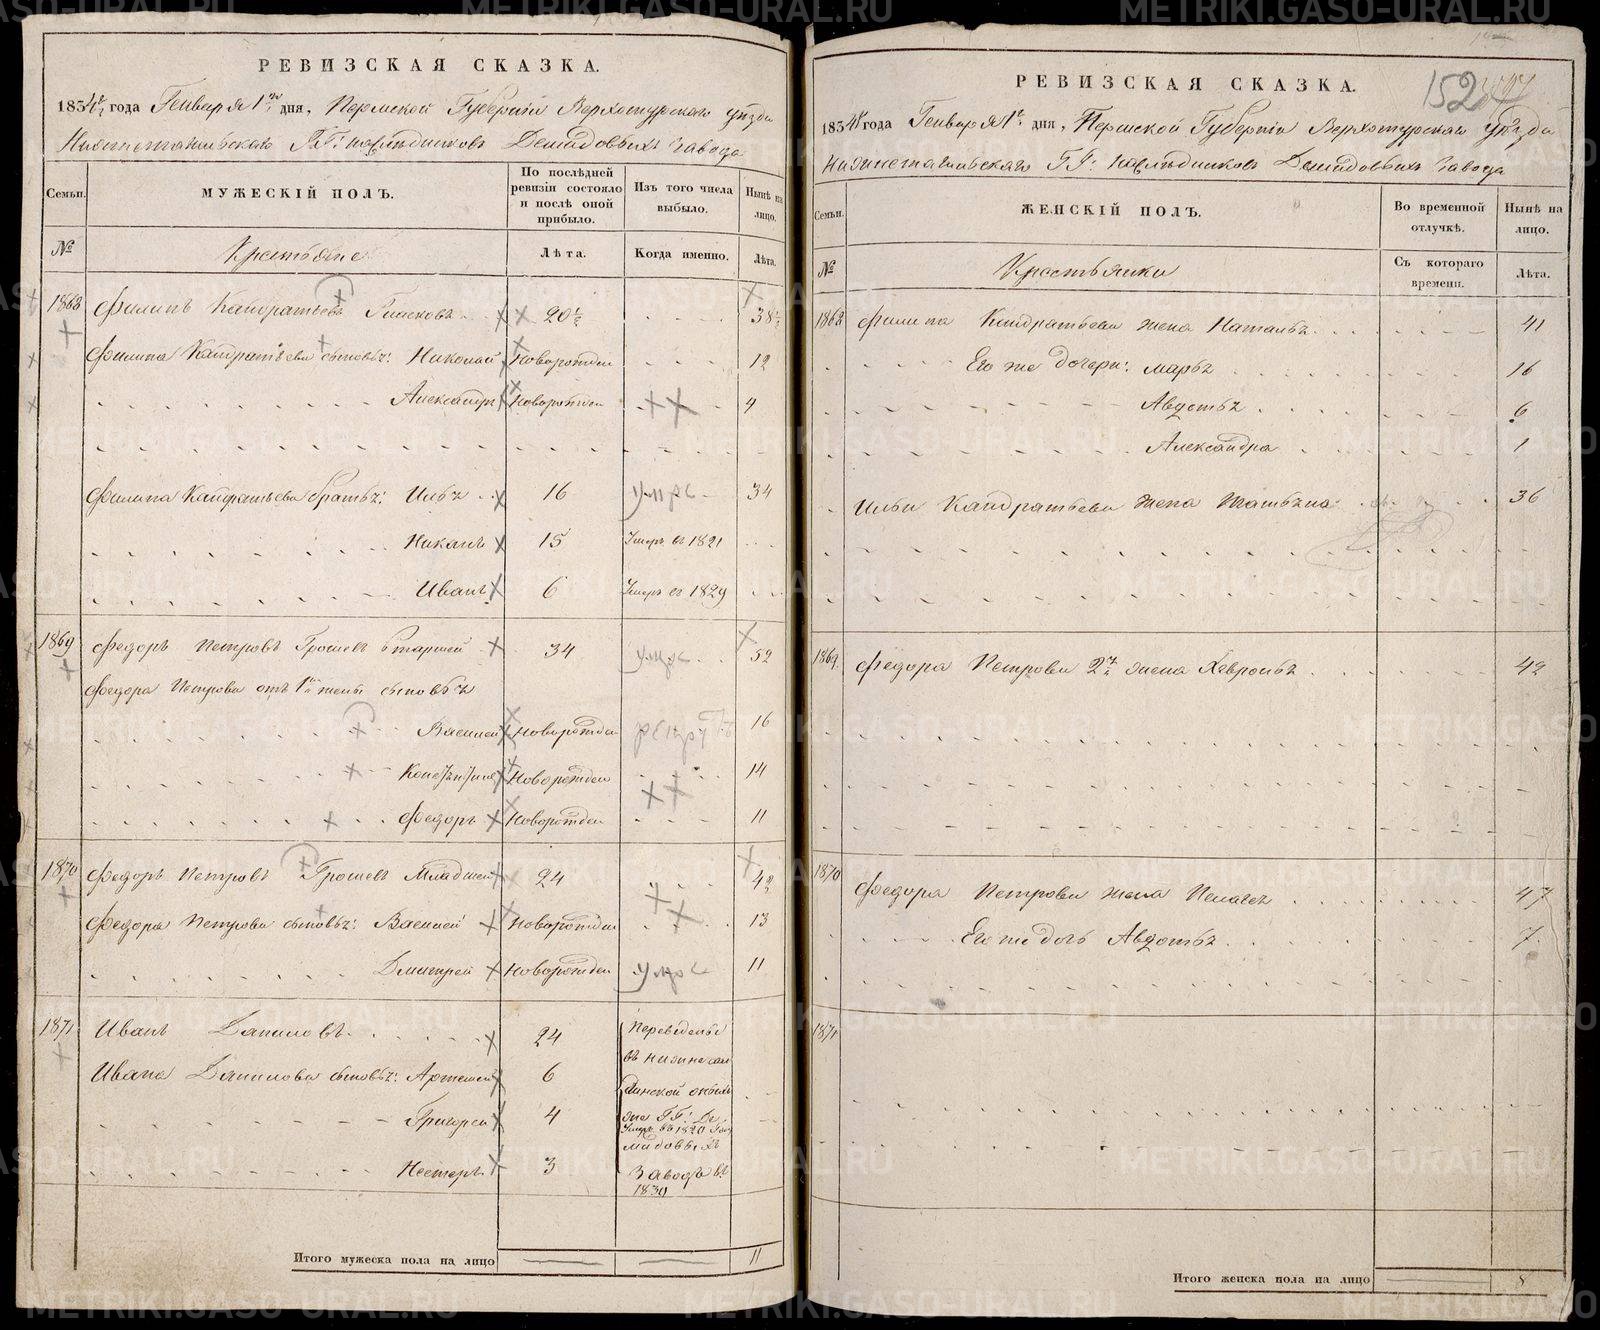 РЕВИЗСКАЯ СКАЗКА.
1834го года Генваря 1го дня, Пермской Губерніи Верхотурскаго уѣзда
Нижнетагильскаго ГГ: наслѣдниковъ Демидовыхъ завода
Семьи. МУЖЕСКІЙ ПОЛЪ. По послѣдней ревизіи состояло и послѣ оной прибыло. Изъ того числа выбыло. Нынѣ на лицо.
№ Крестьяне Лѣта. Когда именно. Лѣта.
1868 Филипъ Кандратьевъ 20½ 38½
Филипа Кандратьева сыновья: Николай Новорожден 12
Александръ Новорожден 4
Филипа Кандратьева братья: Илья 16 умре 34
Никонъ 15 Умеръ въ 1821
Иванъ 6 Умеръ въ 1829
1869 Федоръ Петровъ Грошевъ Старшей 34 умре 52
Федора Петрова отъ 1й жены сыновья
Василей Новорожден рекрут 16
Констянтинъ Новорожден 14
Федоръ Новорожден 11
1870 Федоръ Петровъ Грошевъ Младшей 24 42
Федора Петрова сыновья: Василей Новорожден 13
Дмитрей Новорожден умре 11
1871 Иванъ Даниловъ 24 Переведены
Ивана Данилова сыновья: Артемей 6 въ нижнесал
динской онымъ
Григорей 4 же ГГ: Де
Умеръ въ 1820 Году
мидовыхъ
Нестеръ 3 Заводъ въ
1830
Итого мужеска пола на лицо 11
РЕВИЗСКАЯ СКАЗКА.
152
1834го года Генваря 1го дня, Пермской Губерніи Верхотурскаго уѣзда
Нижнетагильскаго ГГ: наслѣдниковъ Демидовыхъ завода
Семьи. ЖЕНСКІЙ ПОЛЪ. Во временной отлучкѣ. Нынѣ на лицо.
№ Крестьянки Съ котораго времени. Лѣта.
1868 Филипа Кандратьева жена Наталья 41
Его же дочери: Марья 16
Авдотья 6
Александра 1
Ильи Кандратьева жена Татьяна 36
1869 Федора Петрова 2я жена Хевронья 42
1870 Федора Петрова жена Пелагея 47
Его же дочь Авдотья 7
1871
Итого женска пола на лицо 8
METRIKI.GASO-URAL.RU